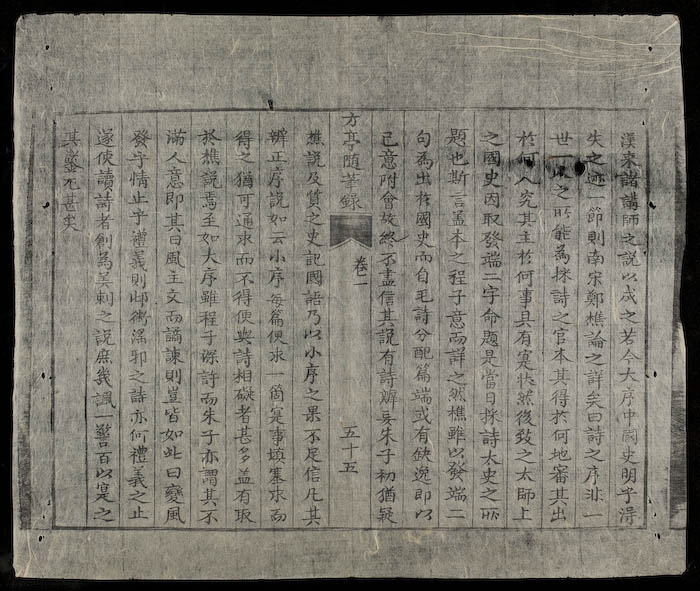 漢來諸講師之說以成之若今大序中國史明乎得
失之迹一節則南宋鄭樵論之詳矣曰詩之序非一
世一人之所能為採詩之官本其得於何地審其出
於何人究其主於何事具有寔狀然後致之太師上
之國史因取發端二字命題是當日採詩太史之所
題也斯言盖本之程子意而詳之然樵雖以發端二
句為出於國史而自毛詩分配篇端或有缺逸即以
己意附會故終不盡信其說有詩辨妄朱子初猶疑
方亭随筆錄 卷一 五十五
樵說及質之史記國語乃以小序之果不足信凡其
辨正序說如云小序每篇便求一箇寔事填塞求而
得之猶可通求而不得便與詩相礙者甚多盖有取
於樵說焉至如大序雖程子深許而朱子亦謂其不
滿人意即其曰風主文而譎諫則豈皆如此曰變風
發乎情止乎禮義則邶衛滛邪之詩亦何禮義之止
遂使讀詩者創為美刺之說庶幾諷一警百以寔之
其鑿尤甚矣